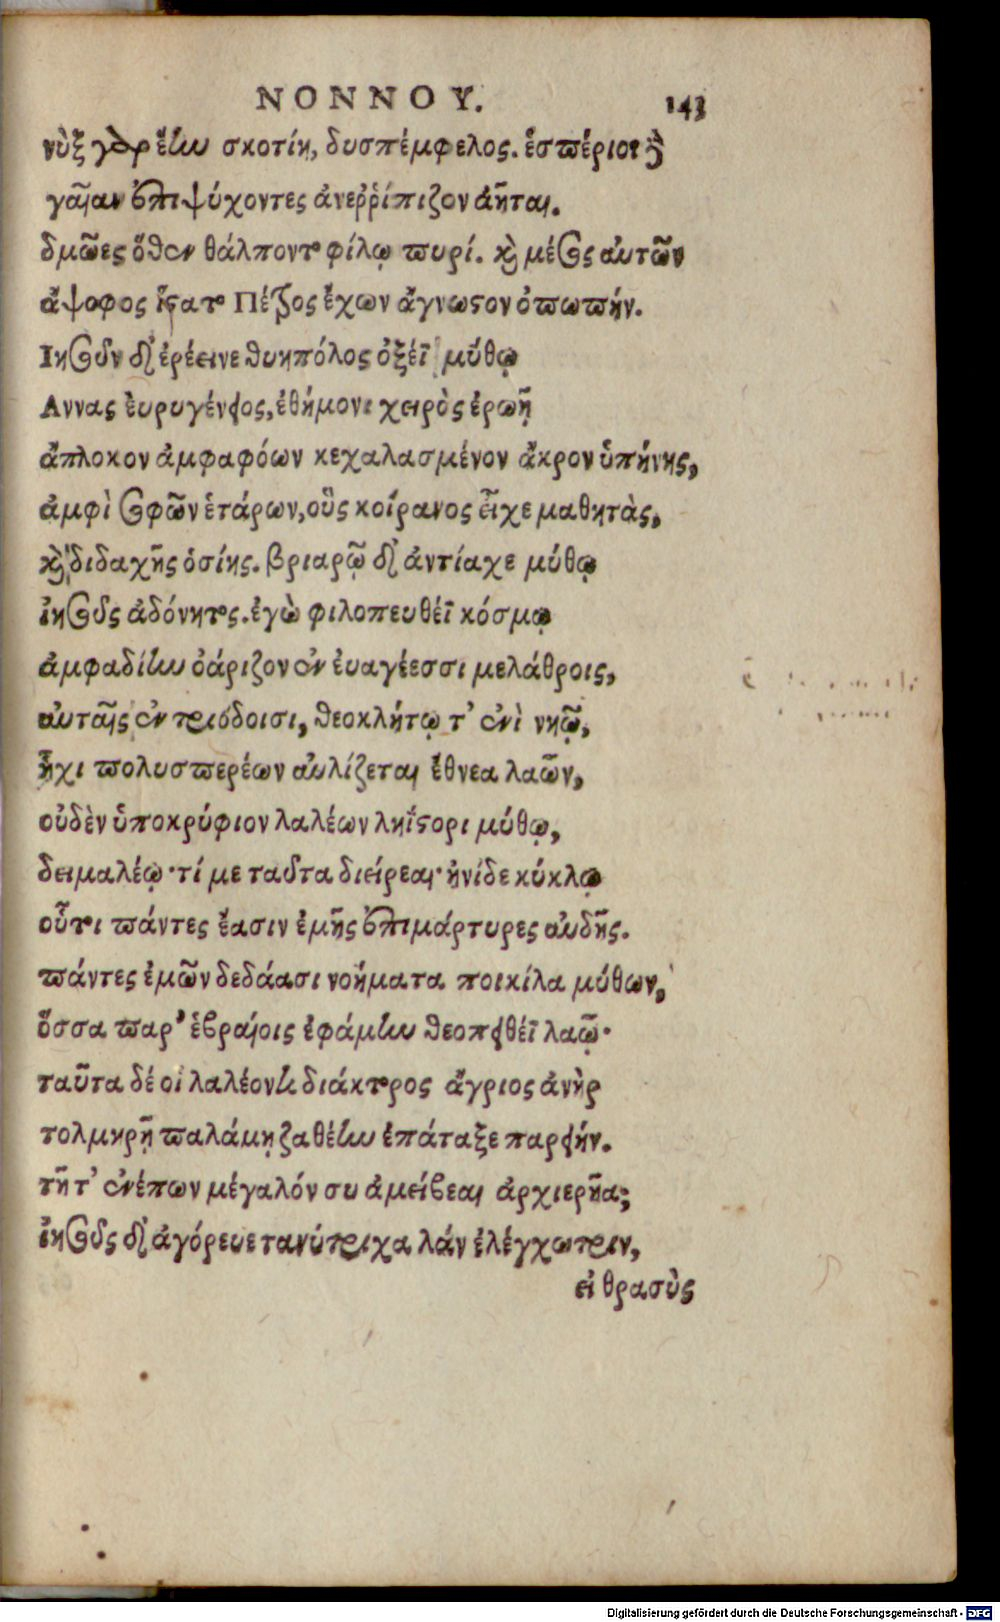 ΝΟΝΝΟΥ. 143
νὺξ γὰρ ἔην σκοτίη, δυσπέμφελος. ἑσπέριοι δὲ
γαῖαν ἐπιψύχοντες ἀνεῤῥίπιζον ἀῆται.
δμῶες ὅθεν θάλποντο φίλῳ πυρί. καὶ μέσος αὐτῶν
ἄψοφος ἵστατο Πέτρος ἔχων ἄγνωστον ὀπωπήν.
Ιησοῦν δ' ἐρέεινε θυηπόλος ὀξέϊ μύθῳ
Αννας ἐυρυγένειος, ἐθήμονι χειρὸς ἐρωῇ
ἄπλοκον ἀμφαφόων κεχαλασμένον ἄκρον ὑπήνης,
ἀμφὶ σοφῶν ἑτάρων, οὓς κοίρανος εἶχε μαθητὰς,
καὶ διδαχῆς ὁσίης. βριαρῷ δ' ἀντίαχε μύθῳ
ἰησοῦς ἀδόνητος. ἐγὼ φιλοπευθέϊ κόσμῳ
ἀμφαδίην ὀάριζον ἐν ἐυαγέεσσι μελάθροις,
αὐταῖς ἐν τριόδοισι, θεοκλήτῳ τ' ἐνὶ νηῷ,
ἧχι πολυσπερέων αὐλίζεται ἔθνεα λαῶν,
οὐδὲν ὑποκρύφιον λαλέων ληΐστορι μύθῳ,
δειμαλέῳ· τί με ταῦτα διείρεαι· ἠνίδε κύκλῳ
οὗτι πάντες ἔασιν ἐμῆς ἐπιμάρτυρες αὐδῆς.
πάντες ἐμῶν δεδάασι νοήματα ποικίλα μύθων,
ὅσσα παρ' ἑβραίοις ἐφάμην θεοπειθέϊ λαῷ·
ταῦτα δέ οἱ λαλέοντι διάκτορος ἄγριος ἀνὴρ
τολμηρῇ παλάμῃ ζαθέην ἐπάταξε παρειήν.
τῇ τ' ἐνέπων μέγαλόν συ ἀμείβεαι ἀρχιερῆα;
ἰησοῦς δ' ἀγόρευε τανύτριχα λάν ἐλέγχων τριν,
εἰ θρασὺς